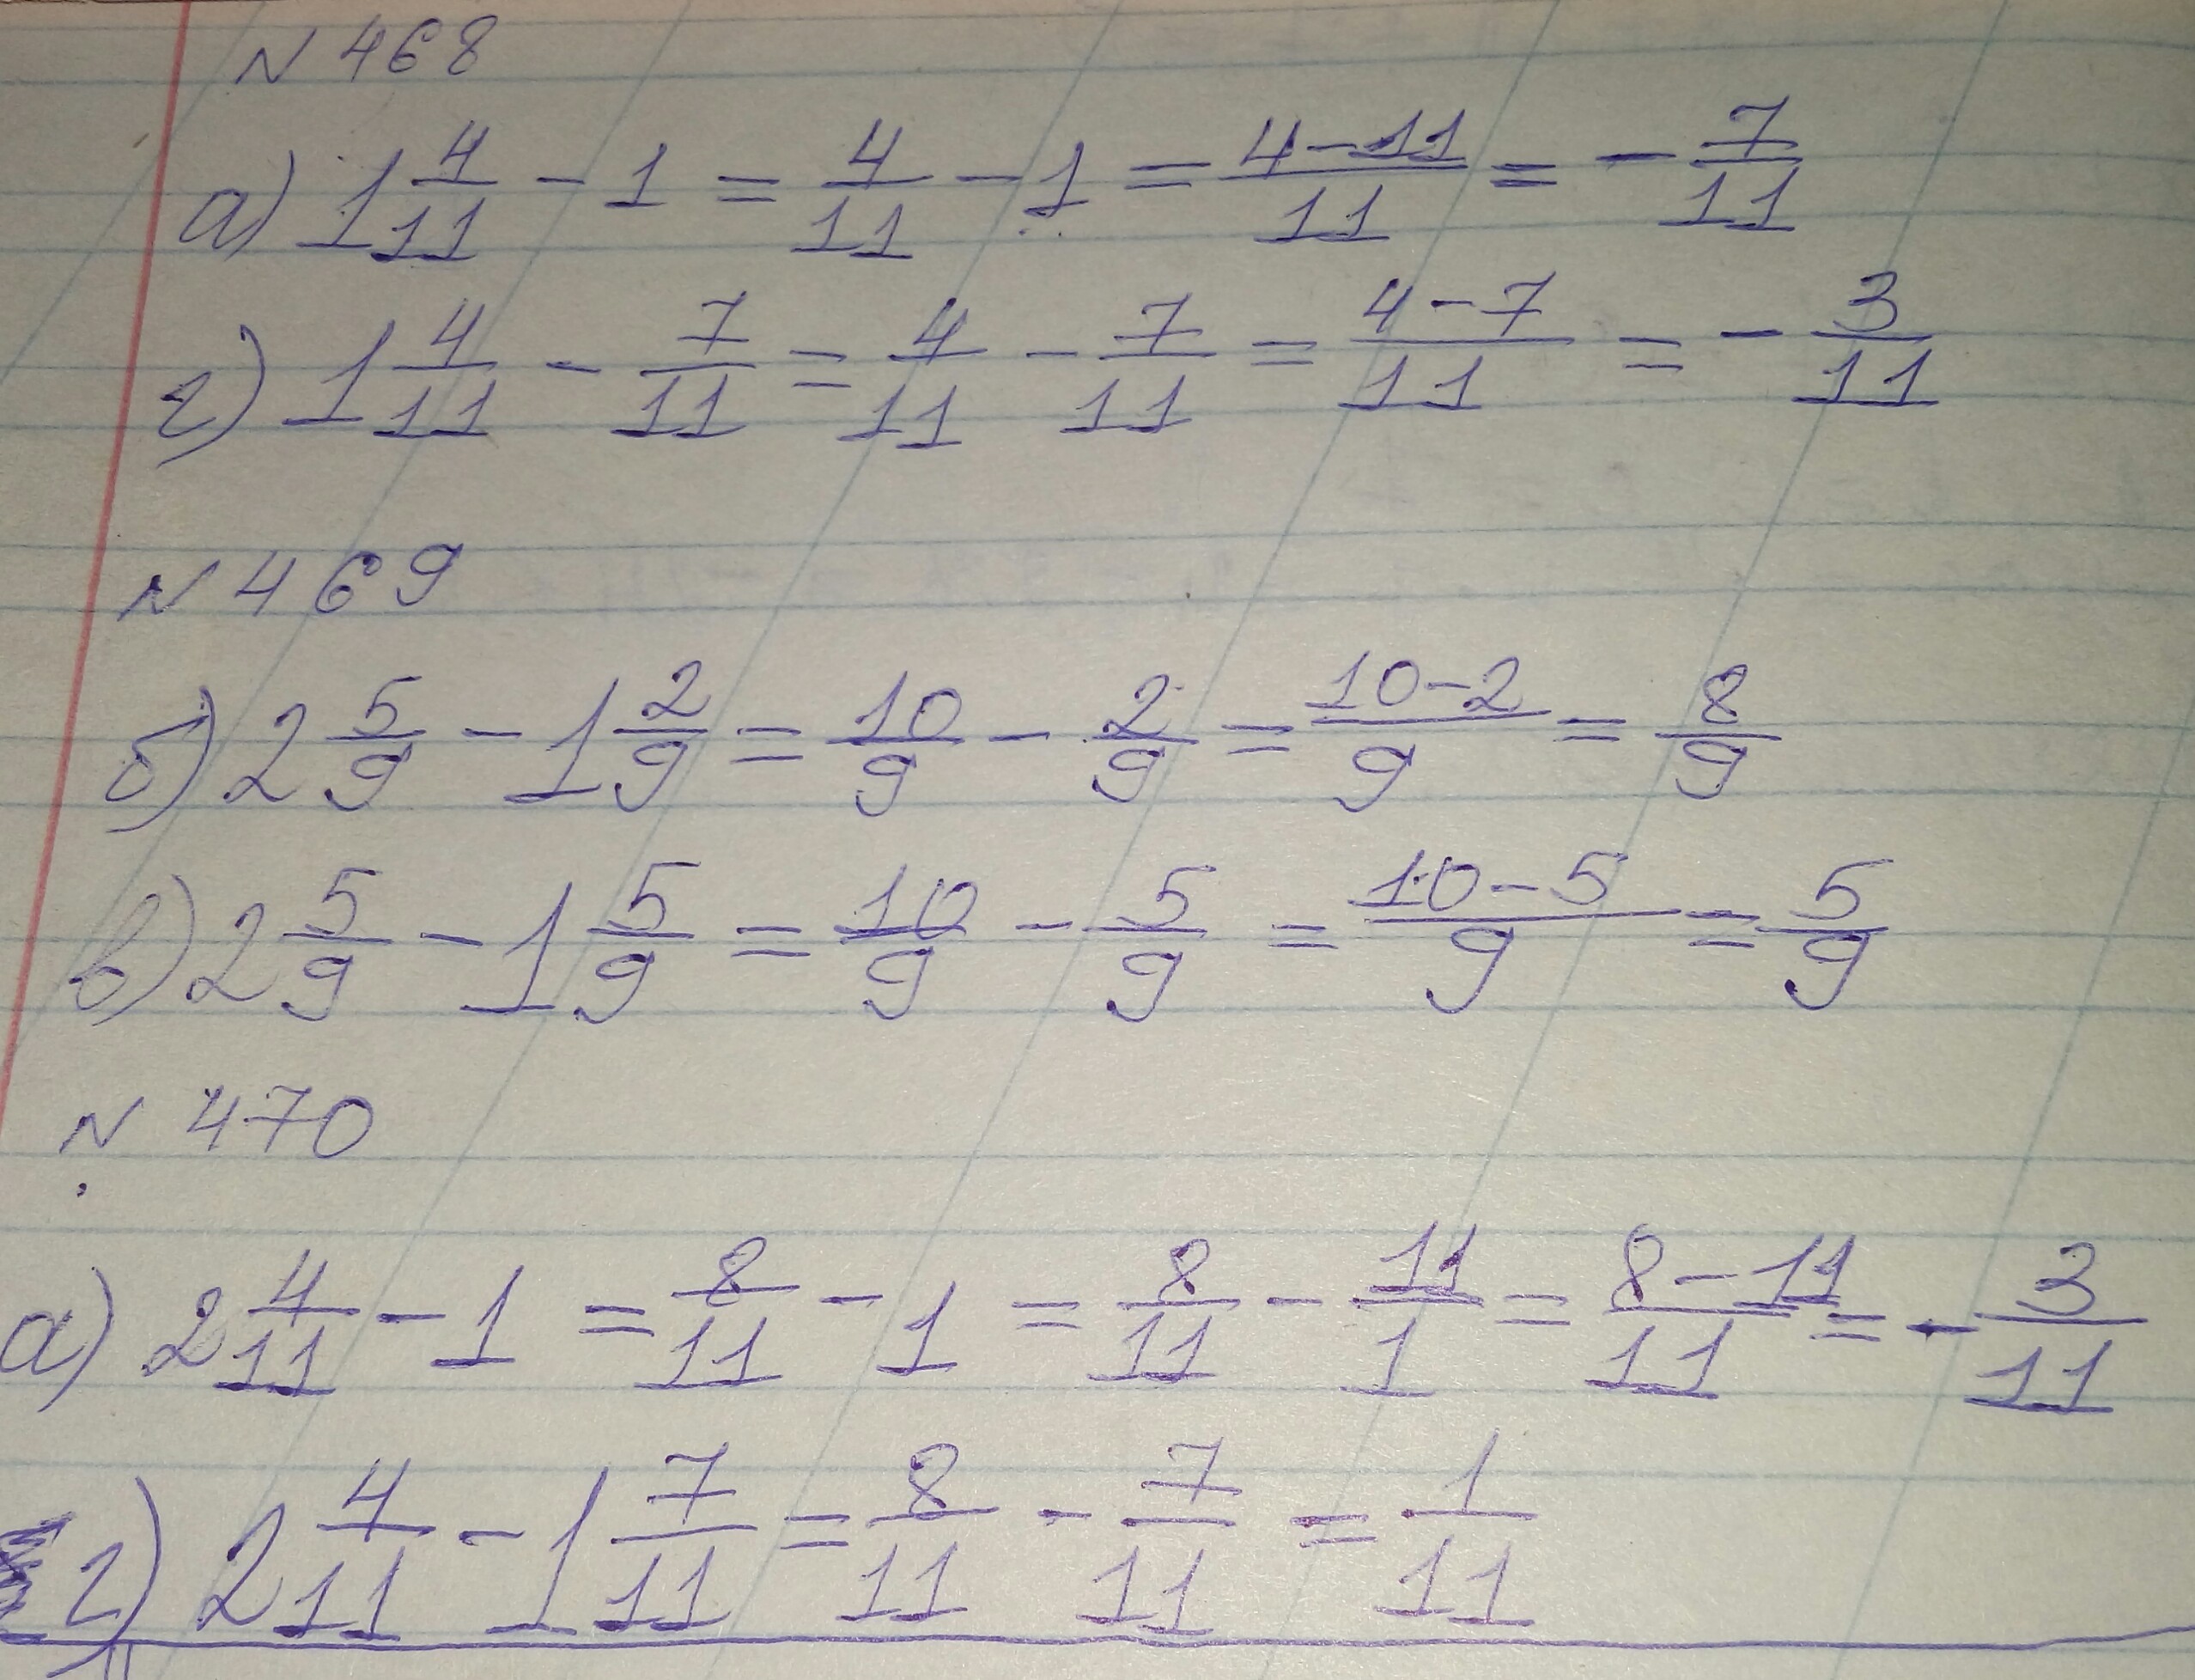 N 468
а) 1 4/11 - 1 = 4/11 - 1 = (4-11)/11 = - 7/11
г) 1 4/11 - 7/11 = 4/11 - 7/11 = (4-7)/11 = - 3/11
N 469
б) 2 5/9 - 1 2/9 = 10/9 - 2/9 = (10-2)/9 = 8/9
в) 2 5/9 - 1 5/9 = 10/9 - 5/9 = (10-5)/9 = 5/9
N 470
а) 2 4/11 - 1 = 8/11 - 1 = 8/11 - 11/1 = (8-11)/11 = - 3/11
г) 2 4/11 - 1 7/11 = 8/11 - 7/11 = 1/11